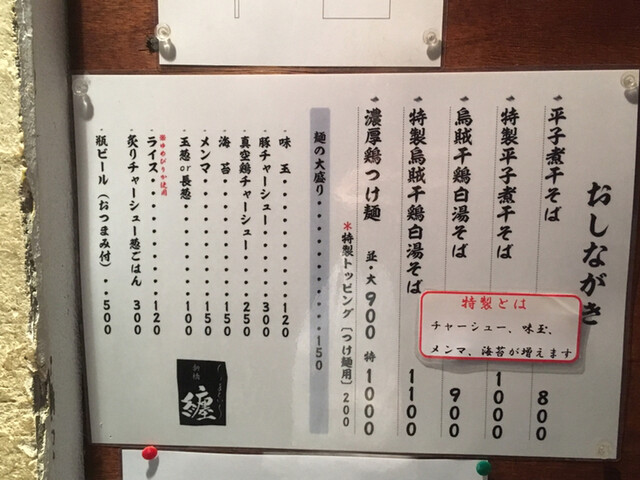 おしながき
平子煮干そば 800
特製平子煮干そば 1000
烏賊干鶏白湯そば 900
特製烏賊干鶏白湯そば 1100
濃厚鶏つけ麺 並・大 900 特 1000
＊特製トッピング〔つけ麺用〕200
麺の大盛り・・・・・・・・・・・150
味玉・・・・・・・・・120
豚チャーシュー・・・・・300
真空鶏チャーシュー・・・250
海苔・・・・・・・・・150
メンマ・・・・・・・・150
玉葱or長葱・・・・・・100
ライス・・・・・・・・120
※ゆめぴりか使用
炙りチャーシュー葱ごはん 300
瓶ビール（おつまみ付）・・500
特製とは
チャーシュー、味玉、
メンマ、海苔が増えます
新橋
纏